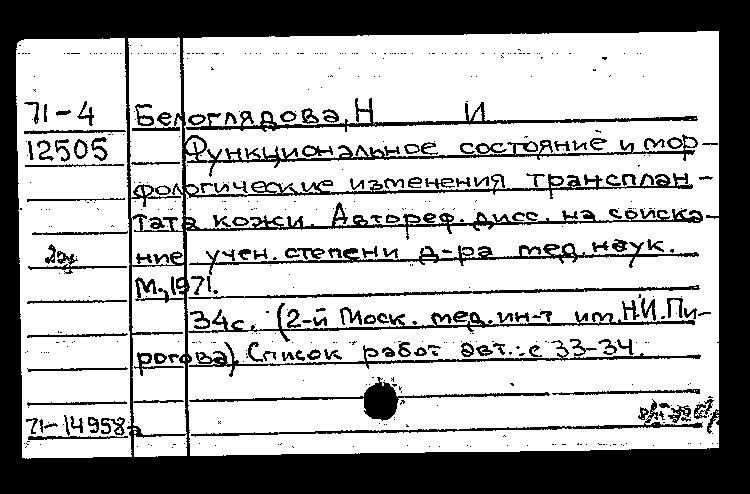 71-4 Белоглядова, Н И
12505 Функциональное состояние и мор-
фологические изменения трансплан-
тата кожи. Автореф. дисс. на соиска-
ние учен. степени д-ра мед. наук.
М., 1971.
34с. (2-й Моск. мед. ин-т им. Н.И. Пи-
рогова) Список работ авт.: с 33-34.
71-14958а